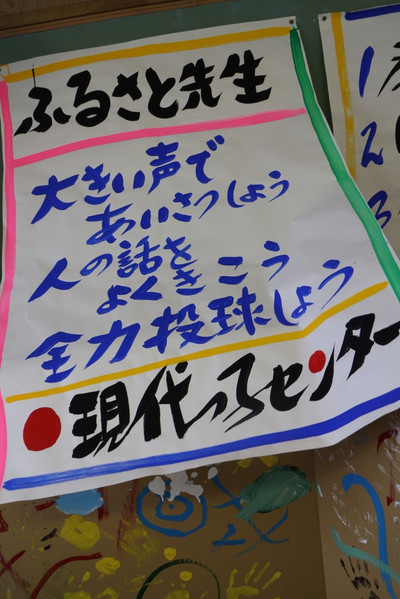 ふるさと先生
大きい声で
あいさつしよう
人の話を
よくきこう
全力投球しよう
現代っ子センター
1
2
3